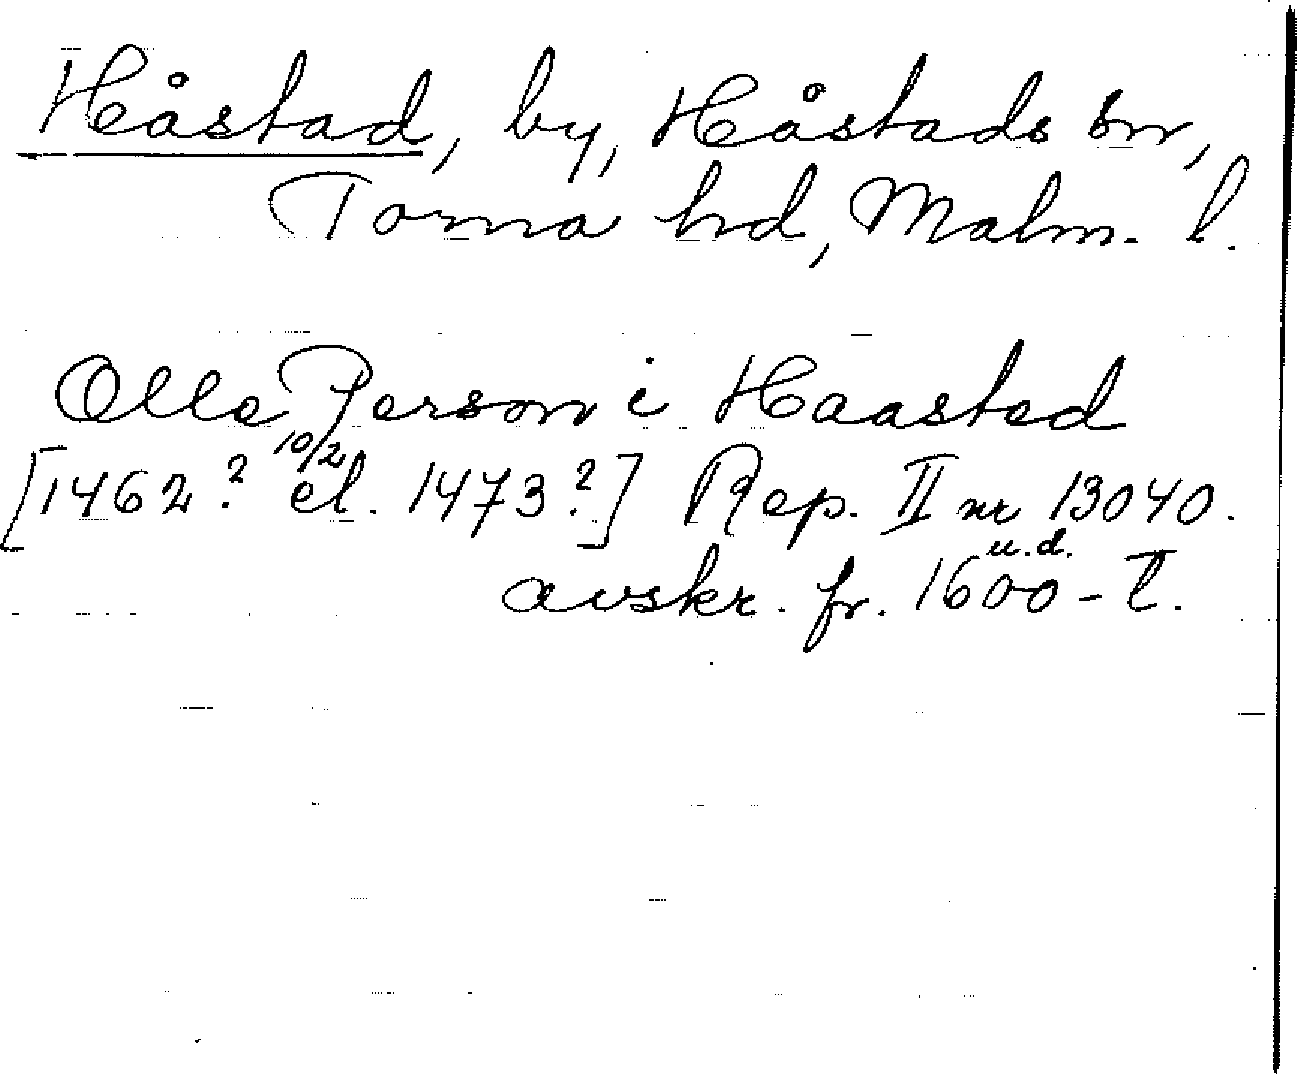 Håstad, by, Håstads sn,
Torna hd, Malm. l.
Olle Person i Haastad
10/2
[1462? el. 1473?] Rep. II nr 13040.
u.d.
avskr. fr. 1600-t.